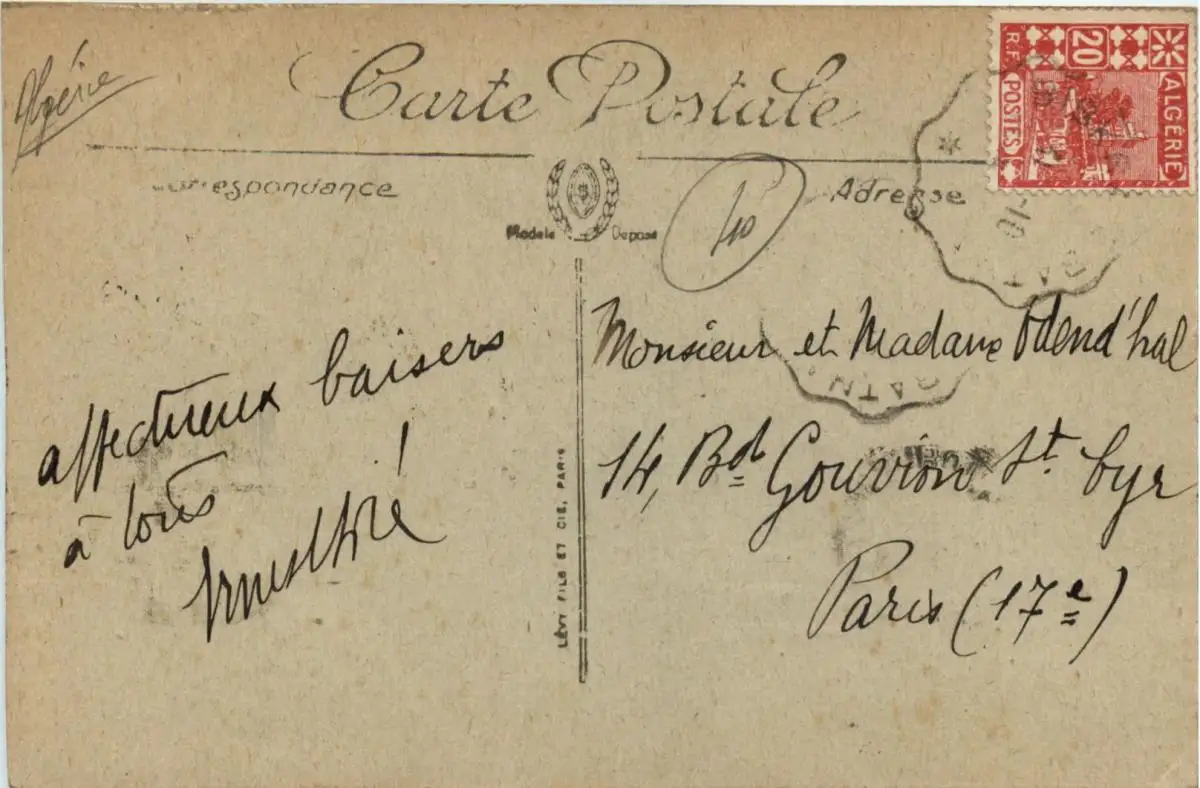 Algérie
Carte Postale
20
R.F.
POSTES
ALGÉRIE
Correspondance
Modèle Déposé
40
Adresse
affectueux baisers
à tous !
Monsieur et Madame Odend'hal
14, Bd Gouvion St. Cyr
Paris (17e)
LÉVY FILS ET CIE, PARIS